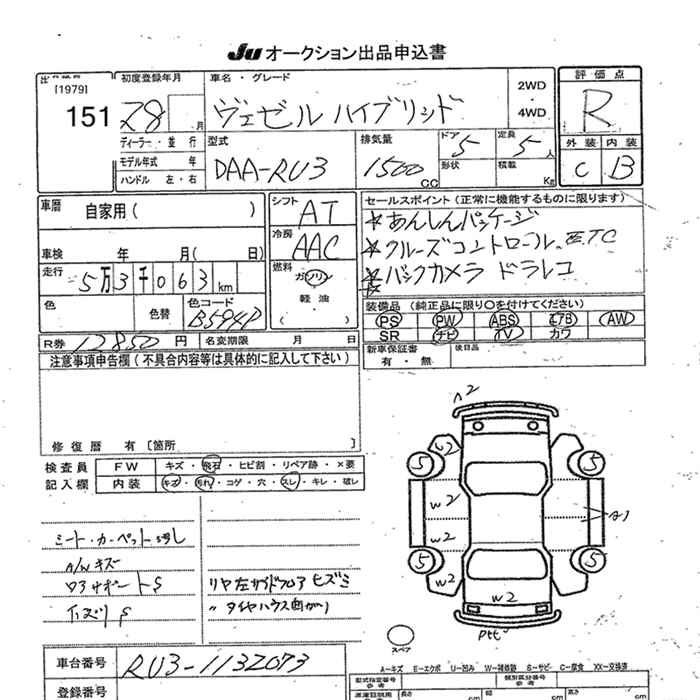 Ju オークション出品申込書
[1979]
151
初度登録年月
28 月
ディーラー・並 行
モデル年式 年
ハンドル 左・右
車名・グレード
ヴェゼル ハイブリッド
2WD
・
4WD
評 価 点
R
外 装 内 装
C B
型式
DAA-RU3
排気量
1500 CC
ドア
5
形状
定員
5 人
積載
Kg
車歴
自家用 ( )
車検 年 月( 日)
走行
5万3千063 km
色
色替
色コード
B594P
シフト
AT
冷房
AAC
燃料
ガソリン
・
軽 油
( )
セールスポイント (正常に機能するものに限ります)
★あんしんパッケージ
★クルーズコントロール、ETC
★バックカメラ ドラレコ
装備品 (純正品に限り○を付けてください)
PS PW ABS エアB AW
SR ナビ TV カワ
新車保証書
有 ・ 無
後日品
R券 12850 円
名変期限 月 日
注意事項申告欄 (不具合内容等は具体的に記入して下さい)
修 復 歴 有 〔箇所 〕
検 査 員
記 入 欄
FW キズ ・ 飛石 ・ ヒビ割 ・ リペア跡 ・ ×要
内 装 キズ ・ 汚れ ・ コゲ ・ 穴 ・ スレ ・ キレ ・ 破レ
シート・カーペット汚レ
A/Wキズ
コアサポートS
リヤ左サイドフロア ヒズミ
〃 タイヤハウス曲がり
A2
U2
5
5
W2
W2
A1
5
5
W2
W2
スペア
A−キズ E−エクボ U−凹み W−補修跡 S−サビ C−腐食 XX−交換済
車台番号
RU3-1132073
登録番号
型式指定番号
参 考
類別区分番号
参 考
長さ
cm
幅
cm
高さ
cm